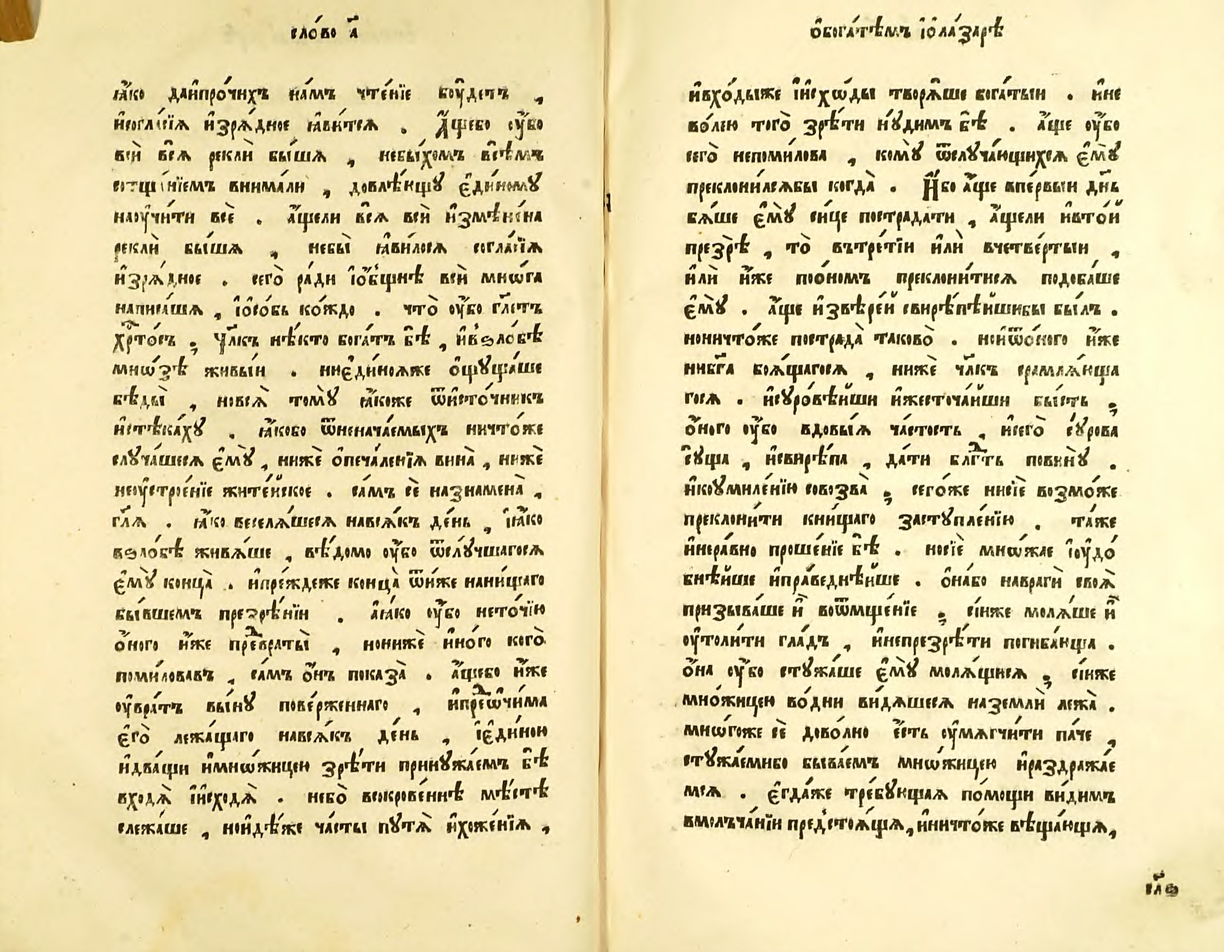 сло́во а҃
ꙗ҆́ко дай́прочихъ на́мъ чте́нїе бꙋ́детъ ,
и҆согла́сїѧ и҆зрѧ́дное ꙗ҆ви́тсѧ . А҆́щебо ᲂу҆́бо
всѝ всѧ̀ реклѝ бы́шѧ , небы́хомъ всѣ́мъ
сотщанїемъ внимали , довлѣ́ющꙋ є҆ди́номꙋ
наᲂучи́ти всѐ . а҆́щели всѧ̀ всѝ и҆змѣне́на
реклѝ бы́шѧ , небы̀ ꙗ҆ви́лосѧ согла́сїѧ
и҆зрѧ́дное . сего̀ ра́ди і҆ѻ҆́бщнѣ всѝ мнѡ́га
написа́шѧ , і҆ѻ҆со́бь ко́ждо . что̀ ᲂу҆́бо гл҃етъ
хрⷭ҇то́съ ; чл҃къ нѣ́кто бога́тъ бѣ̀ , и҆вѕло́бѣ
мно́зѣ живы́и . ниє҆ди́ноѧже ѻ҆щꙋща́ше
бѣды̀ , новсѧ̀ томꙋ̀ ꙗ҆́коже ѿи҆сто́чникъ
и҆стѣка́хꙋ . ꙗ҆́кобо ѿнеча́емыхъ ничто́же
слꙋча́шесѧ є҆мꙋ̀ , нижѐ ѻ҆печале́нїѧ вина̀ , нижѐ
неᲂустрое́нїе жите́йское . са́мъ сѐ назнамена̀ ,
гл҃ѧ . ꙗ҆́ко веселѧ́шесѧ навсѧ́къ де́нь , і҆ꙗ҆́ко
вѕло́бѣ живѧ́ше , вѣ́домо ᲂу҆́бо ѿслꙋ́чшагосѧ
є҆мꙋ̀ конца̀ . и҆пре́ждеже конца̀ ѿи́же нани́щаго
бы́вшемъ презрѣ́нїи . а҆ꙗ҆́ко ᲂу҆́бо нето́чїю
ѻ҆́ного и҆́же превраты̀ , нонижѐ и҆но́го кого̀
поми́ловавъ , са́мъ ѻ҆́нъ показа̀ . а҆́щебо и҆́же
ᲂу҆вра́тъ вы́нꙋ пове́рженнаго , и҆преⷣѻчи́ма
є҆го̀ лежа́щаго навсѧ́къ де́нь , і҆є҆ди́ною
и҆два́щи и҆мно́жицею зрѣ́ти принꙋжа́емъ бѣ̀
входѧ̀ і҆и҆сходѧ̀ . небо̀ восокрове́ннѣ мѣ́стѣ
слежа́ше , нои҆дѣ́же ча́сты пꙋтѧ̀ и҆хоже́нїѧ ,
ѻ҆бога́тѣмъ і҆ѻ҆ла́зарѣ
и҆вхо́дыже і҆и҆схѡ́ды творѧ́ше бога́тыи . и҆не
во́лею того̀ зрѣ́ти нꙋ́димъ бѣ̀ . а҆́ще ᲂу҆́бо
сего̀ непоми́лова , комꙋ̀ ѿслꙋча́ющихсѧ є҆мꙋ̀
преклони́лсѧбы когда̀ . И҆́бо а҆́ще впе́рвыи дн҃ь
бѧ́ше є҆мꙋ̀ си́це пострада́ти , а҆́щели и҆вто́й
презрѣ̀ , то̀ вътре́тїи и҆лѝ вчетве́ртыи ,
и҆лѝ и҆́же поо́номъ преклони́тисѧ подоба́ше
є҆мꙋ̀ . а҆́ще и҆звѣре́й свирѣпѣ́йшибы бы́лъ .
нониче́тоже пострада̀ таково̀ . нои҆ѿо́ного и҆́же
нибг҃а боѧ́щагосѧ , нижѐ чл҃къ срамлѧ́юща
госѧ . и҆сꙋровѣ́йши и҆жесточа́йши бы́сть ;
ѻ҆́ного ᲂу҆́бо вдовы́ѧ ча́стость , и҆сего̀ сꙋ́рова
сꙋ́ща , и҆свирѣ́па , да́ти бл҃гть пови́нꙋ .
и҆кᲂумиле́нїю совозва̀ ; сего́же ниси́е возмо́же
преклони́ти кни́щаго застꙋпле́нїю . та́же
и҆нера́вно проше́нїе бѣ̀ . носїѐ мнѡ́жае і҆ᲂудо́
бнѣйше и҆пра́веднѣйше . ѻ҆на́бо наврагѝ своѧ̀
призыва́ше и҆̀ воѿмще́нїе ; се́йже молѧ́ше и҆̀
ᲂу҆толи́ти гла́дъ , и҆непрезрѣ́ти погиба́юща .
ѻ҆на̀ ᲂу҆́бо стꙋжа́ше є҆мꙋ̀ молѧ́щисѧ ; се́йже
мно́жицею во́дни ви́дѧшесѧ наземлѝ лежа̀ .
мно́гоже сѐ дово́лно є҆́сть ᲂу҆мѧгчи́ти па́че ,
стꙋжа́емибо быва́емъ мно́жицею и҆раздража́е
мсѧ . є҆гда́же тре́бꙋющаѧ по́мощи ви́димъ
вмолъча́нїи предстоѧ́щѧ, и҆ничто́же вѣща́ющѧ,
ѕло